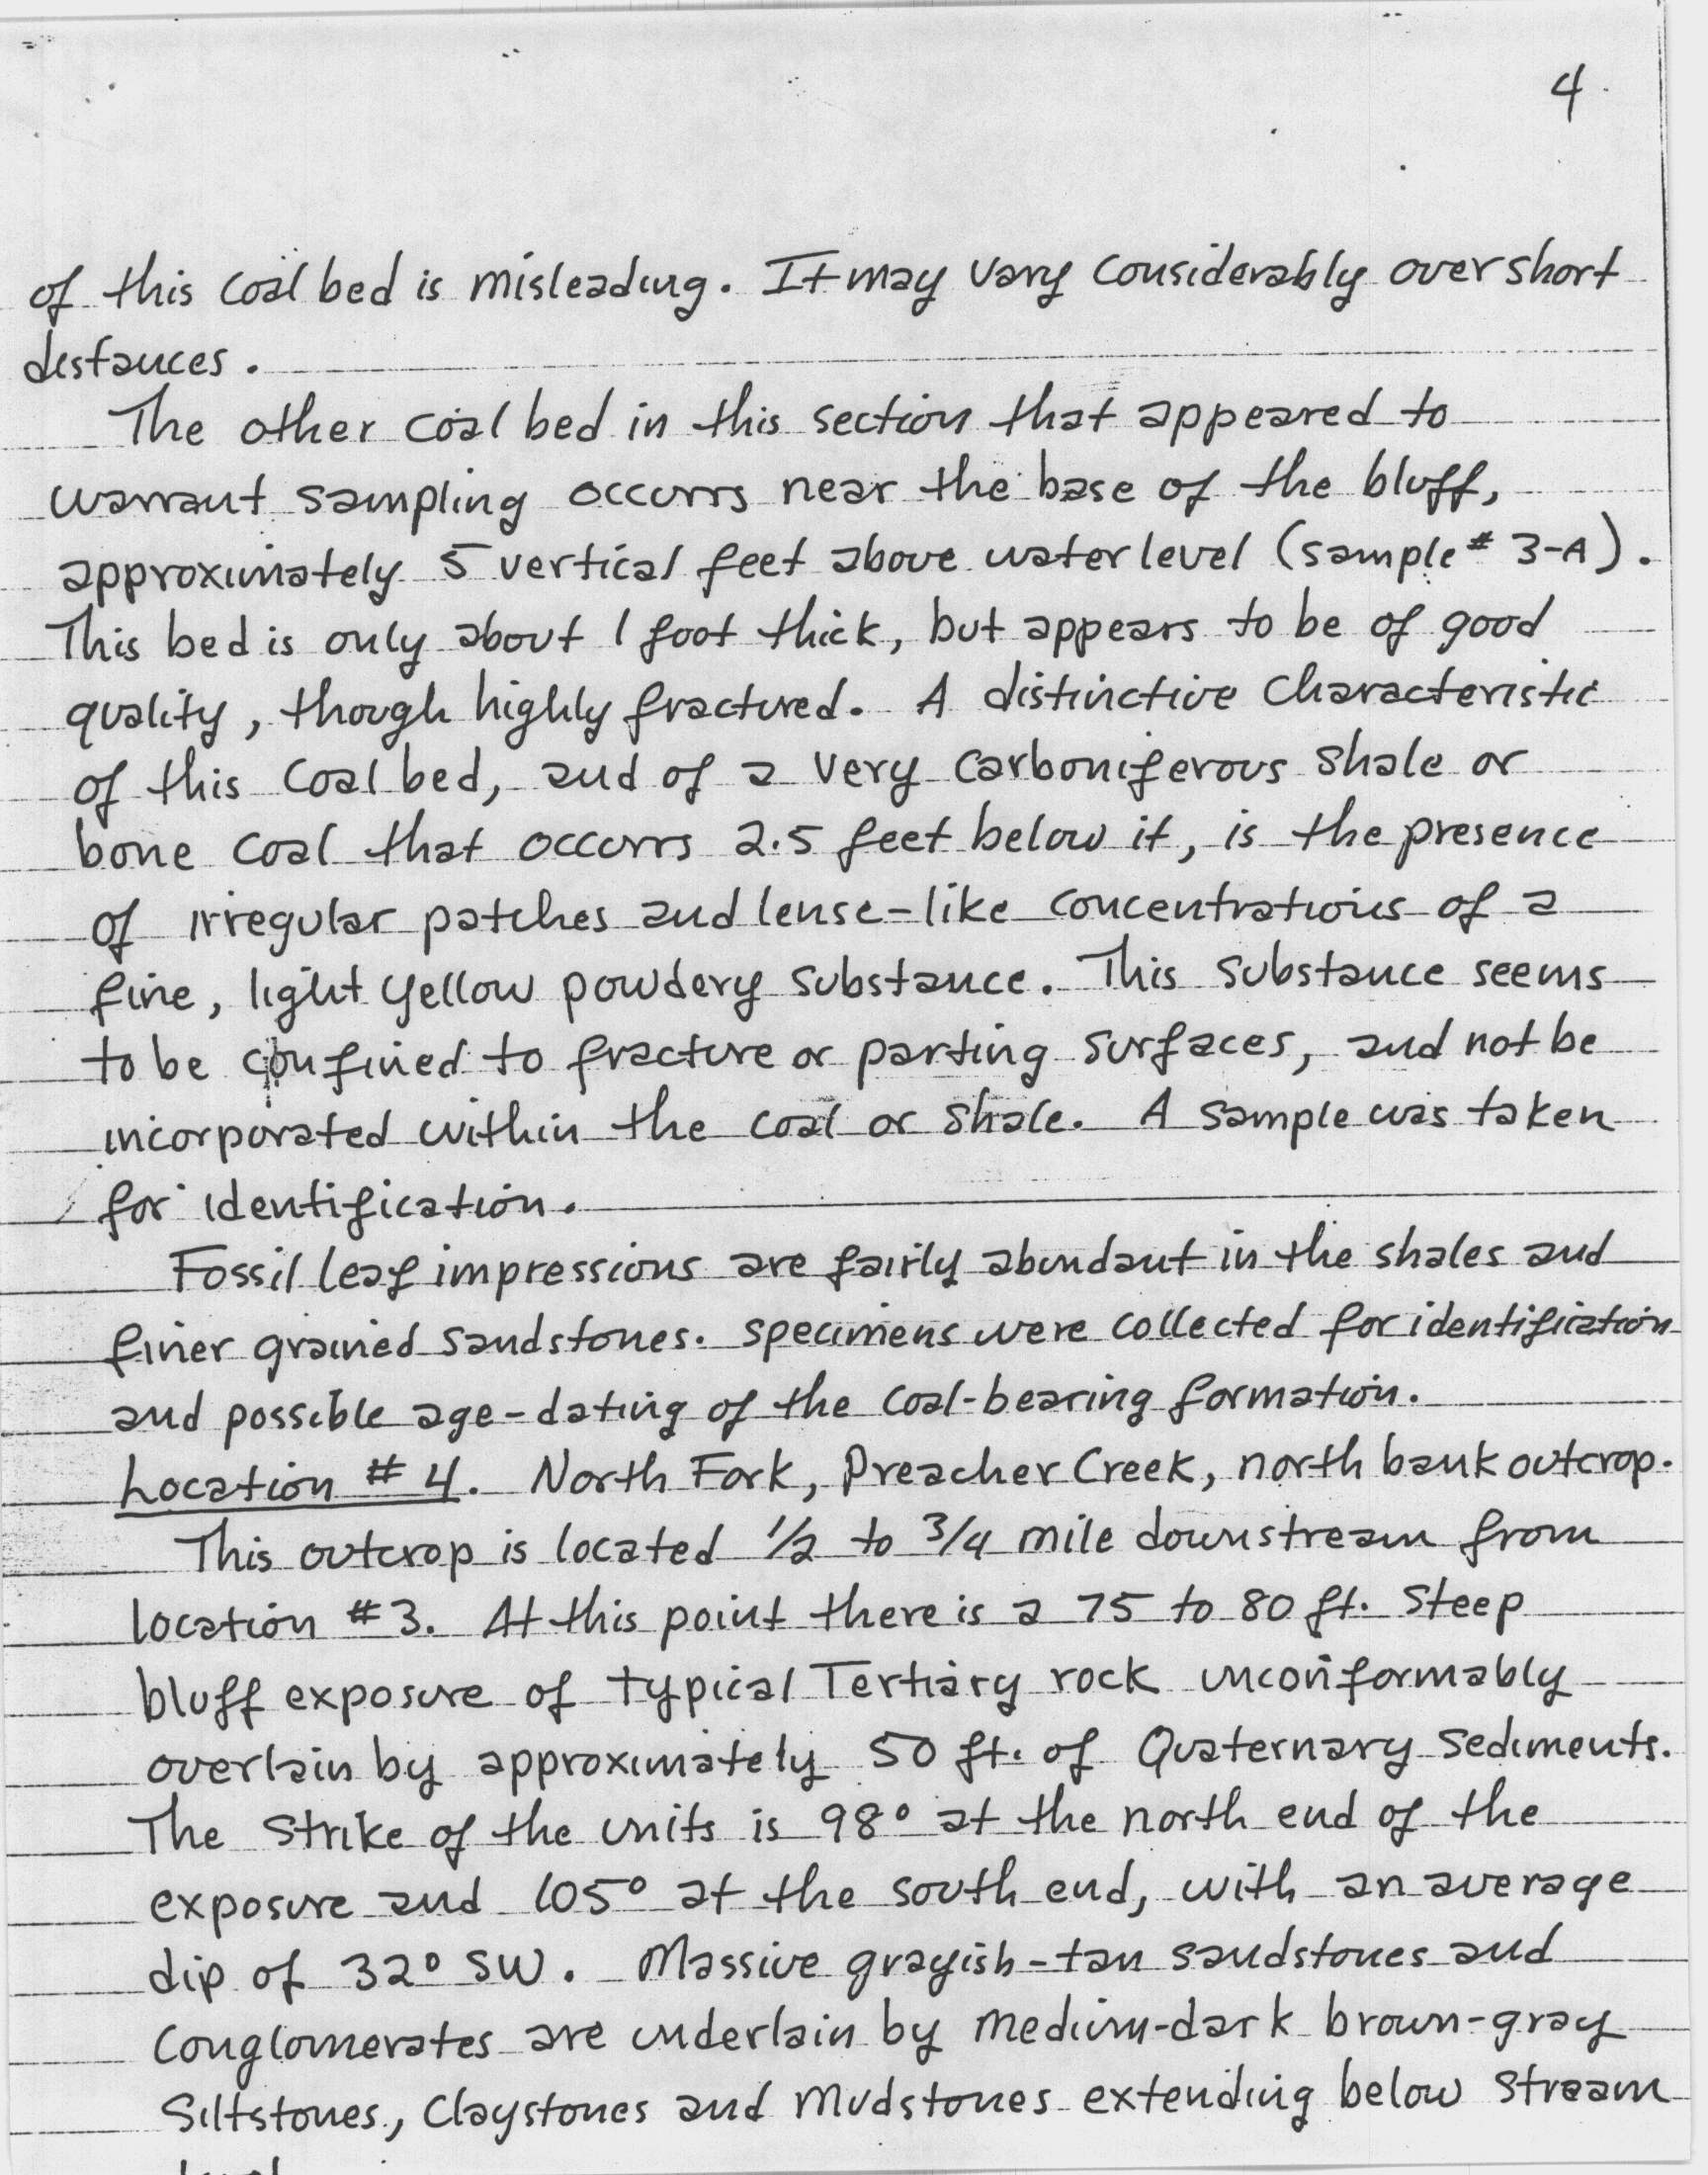 4
of this coal bed is misleading. It may vary considerably over short
distances.
The other coal bed in this section that appeared to
warrant sampling occurrs near the base of the bluff,
approximately 5 vertical feet above water level (sample # 3-A).
This bed is only about 1 foot thick, but appears to be of good
quality, though highly fractured. A distinctive characteristic
of this coal bed, and of a very carboniferous shale or
bone coal that occurrs 2.5 feet below it, is the presence
of irregular patches and lense-like concentrations of a
fine, light yellow powdery substance. This substance seems
to be confined to fracture or parting surfaces, and not be
incorporated within the coal or shale. A sample was taken
for identification.
Fossil leaf impressions are fairly abundant in the shales and
finer grained sandstones. Specimens were collected for identification
and possible age-dating of the coal-bearing formation.
Location # 4. North Fork, Preacher Creek, north bank outcrop.
This outcrop is located 1/2 to 3/4 mile downstream from
location #3. At this point there is a 75 to 80 ft. steep
bluff exposure of typical Tertiary rock unconformably
overlain by approximately 50 ft. of Quaternary sediments.
The strike of the units is 98° at the north end of the
exposure and 105° at the south end, with an average
dip of 32° SW. Massive grayish-tan sandstones and
conglomerates are underlain by medium-dark brown-gray
siltstones, claystones and mudstones extending below stream